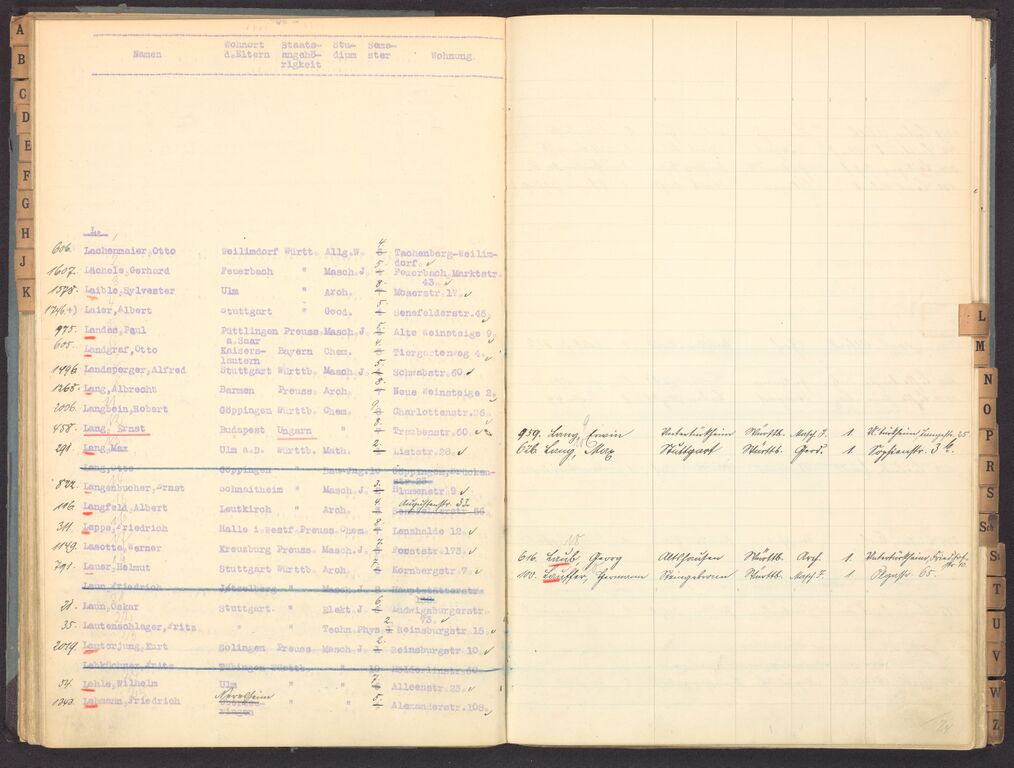 A
B
C
D
E
F
G
H
J
K
Namen Wohnort d.Eltern Staatsangehörigkeit Studium Semester Wohnung
La
606. Lachenmaier,Otto Weilimdorf Württ. Allg.W. 4 Tachenberg-Weilimdorf.
1607. Lächele,Gerhard Feuerbach " Masch.J. 5 Feuerbach,Marktstr. 43.
1578. Laible,Sylvester Ulm " Arch. 8 Moserstr.17.
1746 +) Laier,Albert Stuttgart " Geod. 5 Senefelderstr.46
975. Landes,Paul Püttlingen a.Saar Preuss. Masch.J. 5 Alte Weinsteige 9.
605. Landgraf,Otto Kaiserslautern Bayern Chem. 4 Tiergartenweg 4.
1496 Landsperger,Alfred Stuttgart Württb. Masch.J. 5 Schwabstr.60.
1265. Lang,Albrecht Barmen Preuss. Arch. 8 Neue Weinsteige 2
2006. Langbein,Robert Göppingen Württb. Chem. 9 Charlottenstr.26.
458. Lang, Ernst Budapest Ungarn " 7 Traubenstr.60.
291. Lang,Max Ulm a.D. Württb. Math. 2 Liststr.28.
Lang,Otto Göppingen " Göppingen,Brücken-str.
822. Langenbucher,Ernst Schnaitheim " Masch.J. 3 Blumenstr.9
116 Langfeld,Albert Leutkirch " Arch. 4 Augustenstr. 33.
311. Lappe,Friedrich Halle i.Westf Preuss. Chem. 8 Lenzhalde 12.
1149. Lasotta,Werner Kreuzburg Preuss. Masch.J. 7 Forststr.173.
791. Lauer,Helmut Stuttgart Württb. Arch. Kornbergstr.7
Laun,Friedrich Masch.J.
21. Laun,Oskar Stuttgart. " Elekt.J. 6 Ludwigsburgerstr. 73.
35. Lautenschlager,Fritz " " Techn.Phys. 2 Reinsburgstr.15
2019. Lauterjung,Kurt Solingen Preuss. Masch.J. 2 Reinsburgstr.10
Lebküchner,Fritz Tübingen Württb. " 10 Hölderlinstr.
54. Lehle,Wilhelm Ulm " " 7 Alleenstr.23.
1343. Lehmann,Friedrich " " 5 Alexanderstr.108.
959. Lang, Erwin Untertürkheim Württb. 1.
Lang, Max Stuttgart Württb. Geod. 1. Sophienstr. 3
616. Laub, Georg Altshausen Württb. Arch. 1. Untertürkheim,
Lauffer, Hermann Württb. 1. 65.
L
M
N
O
P
R
S
Sch
St
T
U
V
W
Z